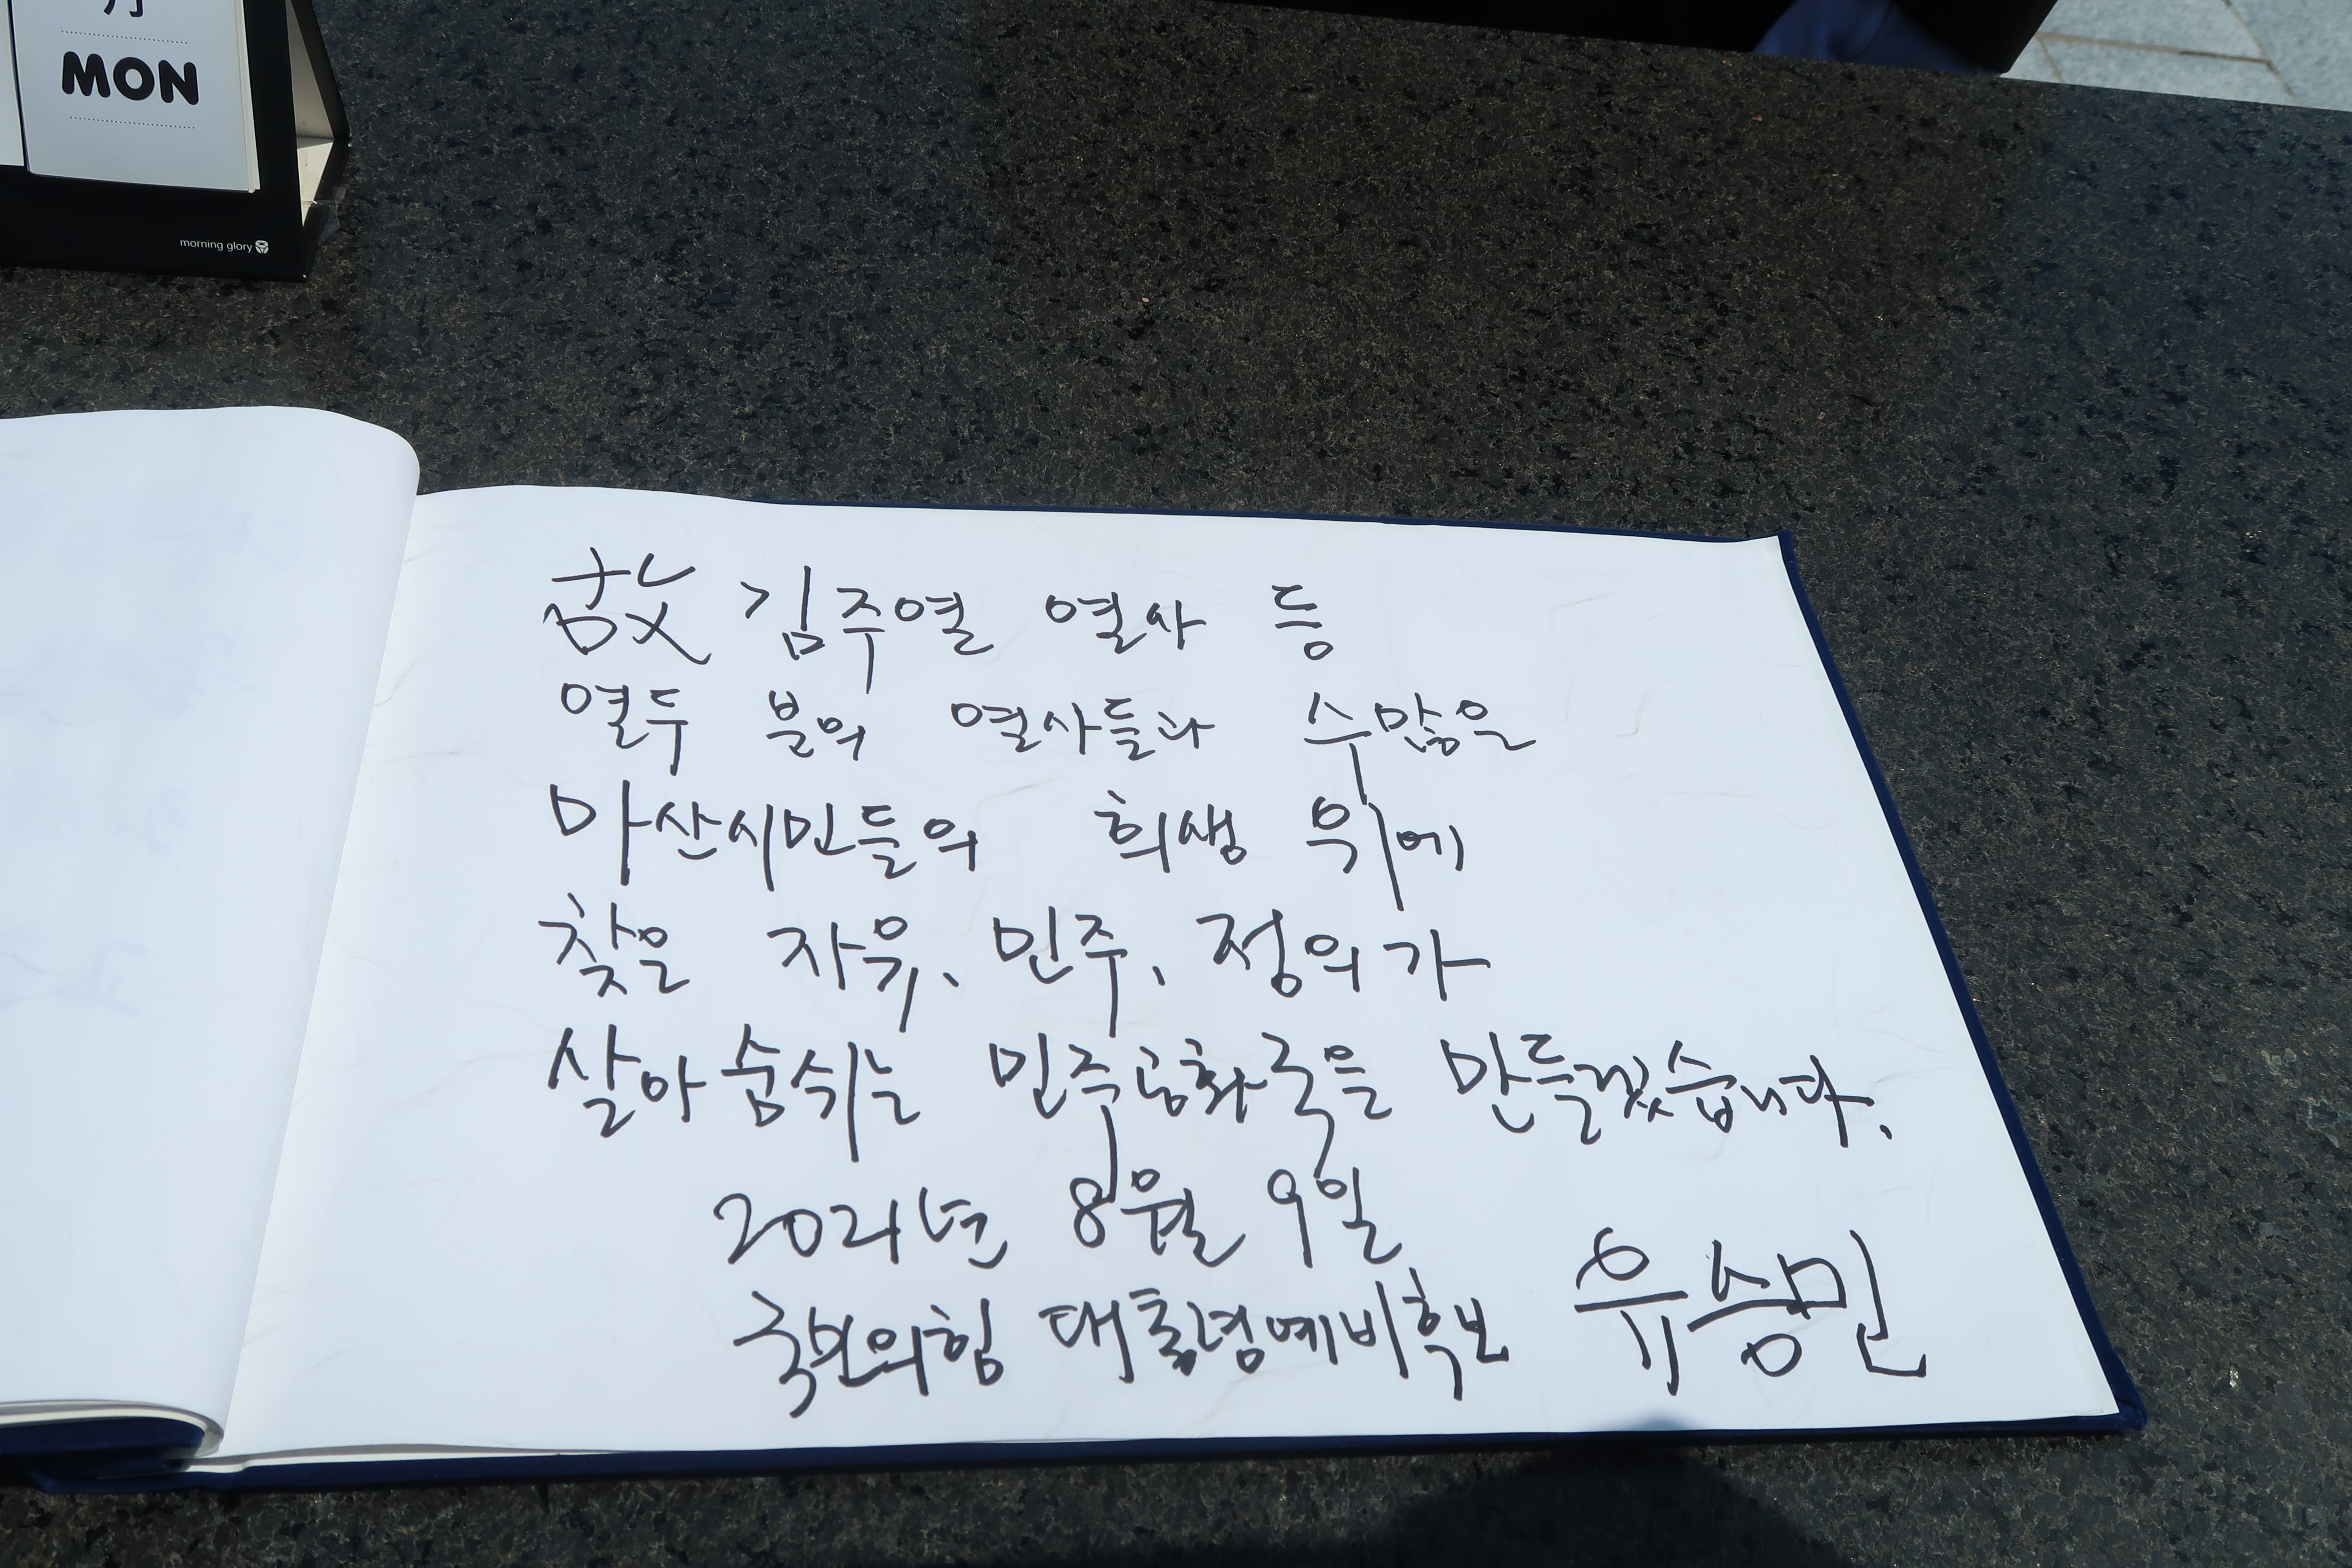 月
MON
morning glory
故 김주열 열사 등
열두 분의 열사들과 수많은
마산시민들의 희생 위에
찾은 자유、민주、정의가
살아 숨쉬는 민주공화국을 만들겠습니다.
2021년 8월 9일
국민의힘 대통령예비후보 유승민